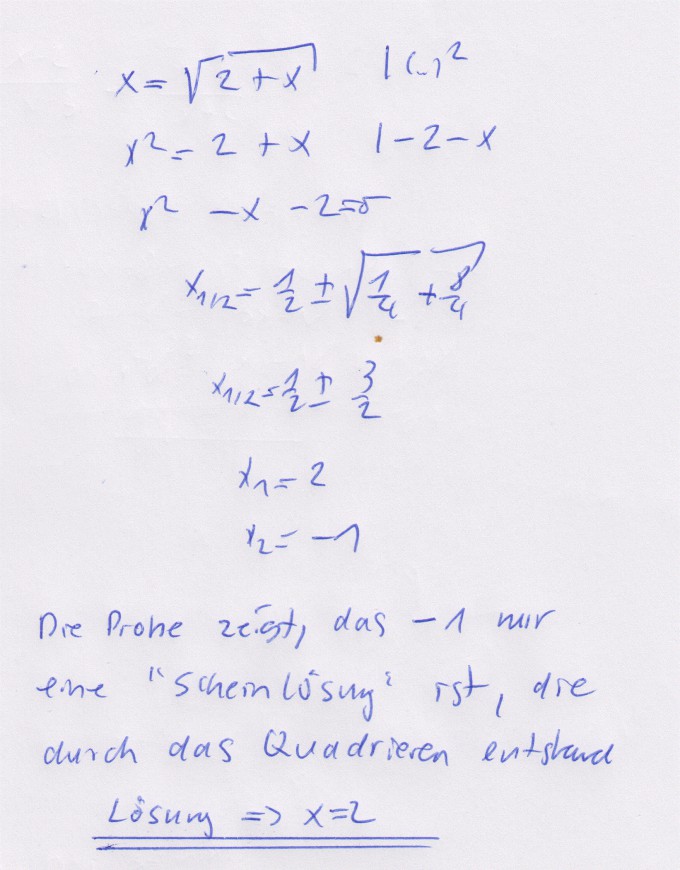 x = √(2 + x) | (..)²
x² = 2 + x | -2 - x
x² - x - 2 = 0
x₁/₂ = 1/2 ± √(1/4 + 8/4)
x₁/₂ = 1/2 ± 3/2
x₁ = 2
x₂ = -1
Die Probe zeigt, das -1 nur
eine "Scheinlösung" ist, die
durch das Quadrieren entstand
Lösung => x=2